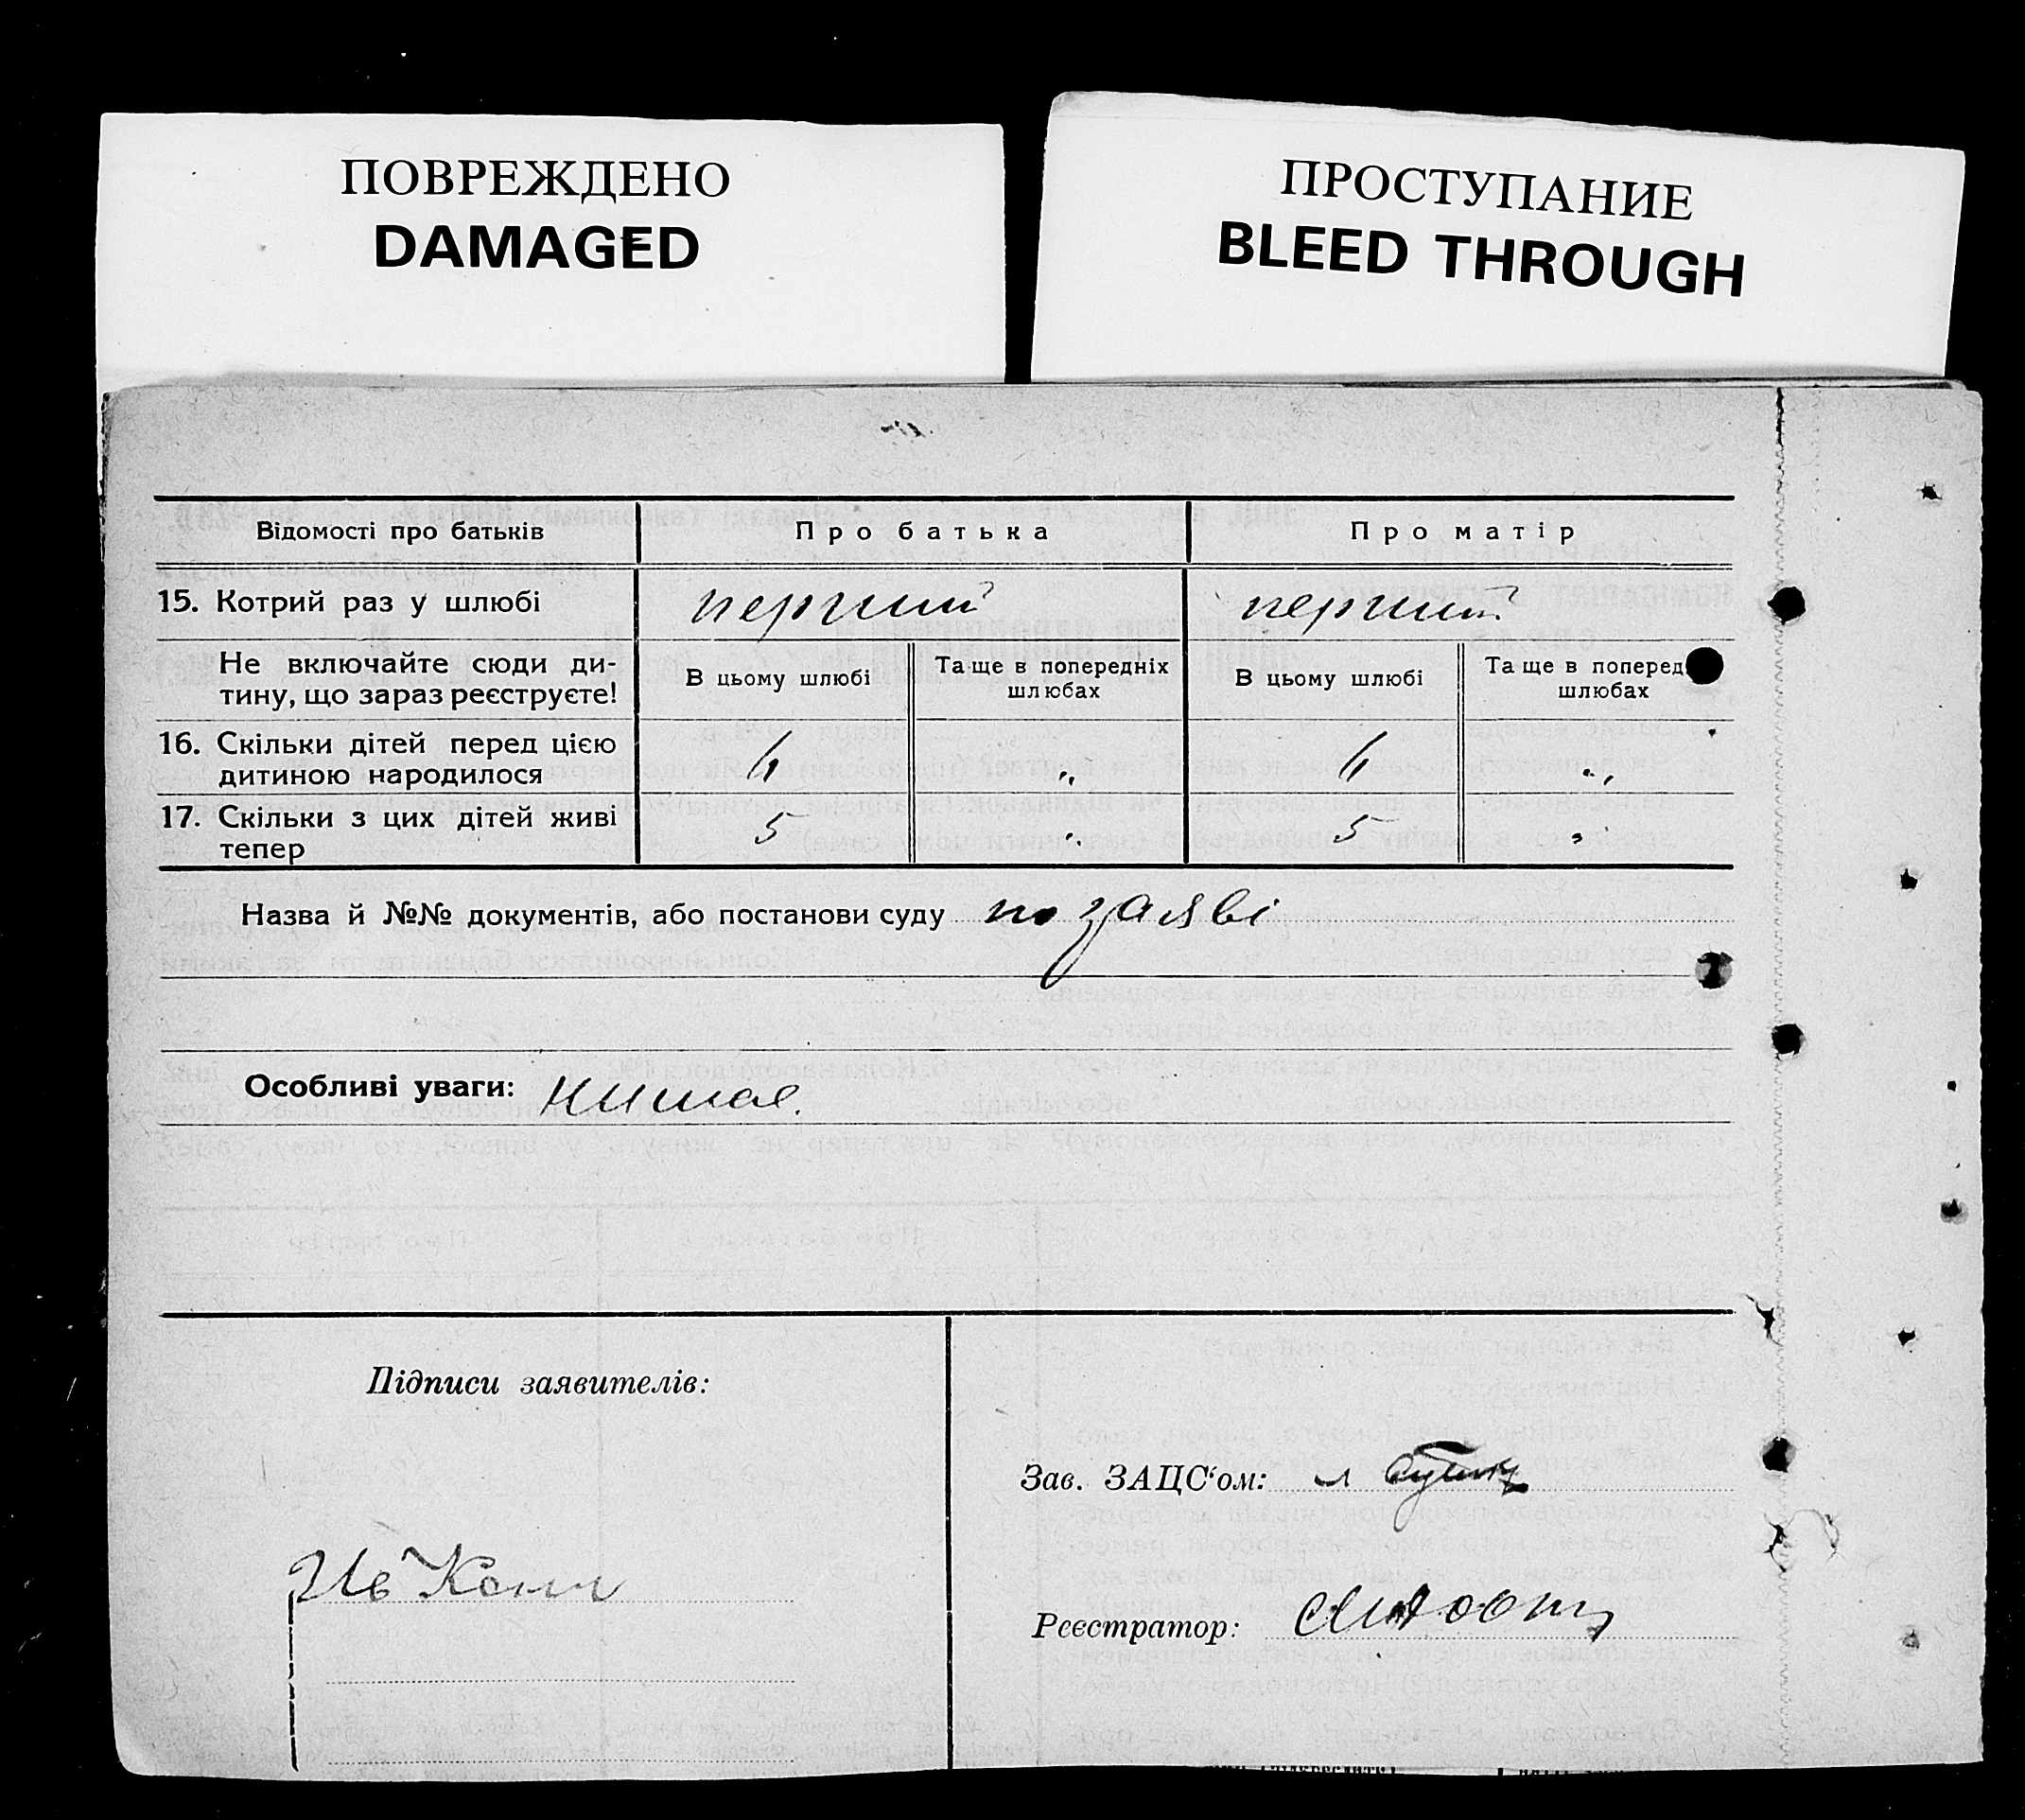 ПОВРЕЖДЕНО
DAMAGED
ПРОСТУПАНИЕ
BLEED THROUGH
Відомості про батьків
Про батька
Про матір
15. Котрий раз у шлюбі
перший
перший
Не включайте сюди ди-
тину, що зараз реєструєте!
В цьому шлюбі
Та ще в попередніх
шлюбах
В цьому шлюбі
Та ще в поперед
шлюбах
16. Скільки дітей перед цією
дитиною народилося
6
„
6
„
17. Скільки з цих дітей живі
тепер
5
„
5
„
Назва й №№ документів, або постанови суду по заяві
Особливі уваги: нимає.
Підписи заявителів:
Зав. ЗАЦС‘ом:
Реєстратор: